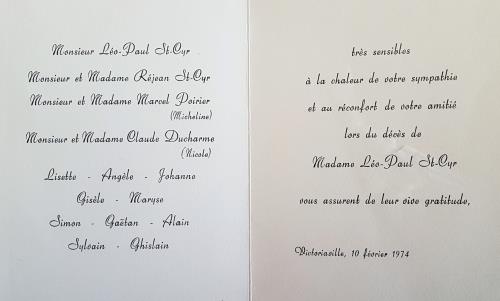 Monsieur Léo-Paul St-Cyr
Monsieur et Madame Réjean St-Cyr
Monsieur et Madame Marcel Poirier
(Micheline)
Monsieur et Madame Claude Ducharme
(Nicole)
Lisette - Angèle - Johanne
Gisèle - Maryse
Simon - Gaëtan - Alain
Sylvain - Ghislain
très sensibles
à la chaleur de votre sympathie
et au réconfort de votre amitié
lors du décès de
Madame Léo-Paul St-Cyr
vous assurent de leur vive gratitude,
Victoriaville, 10 février 1974